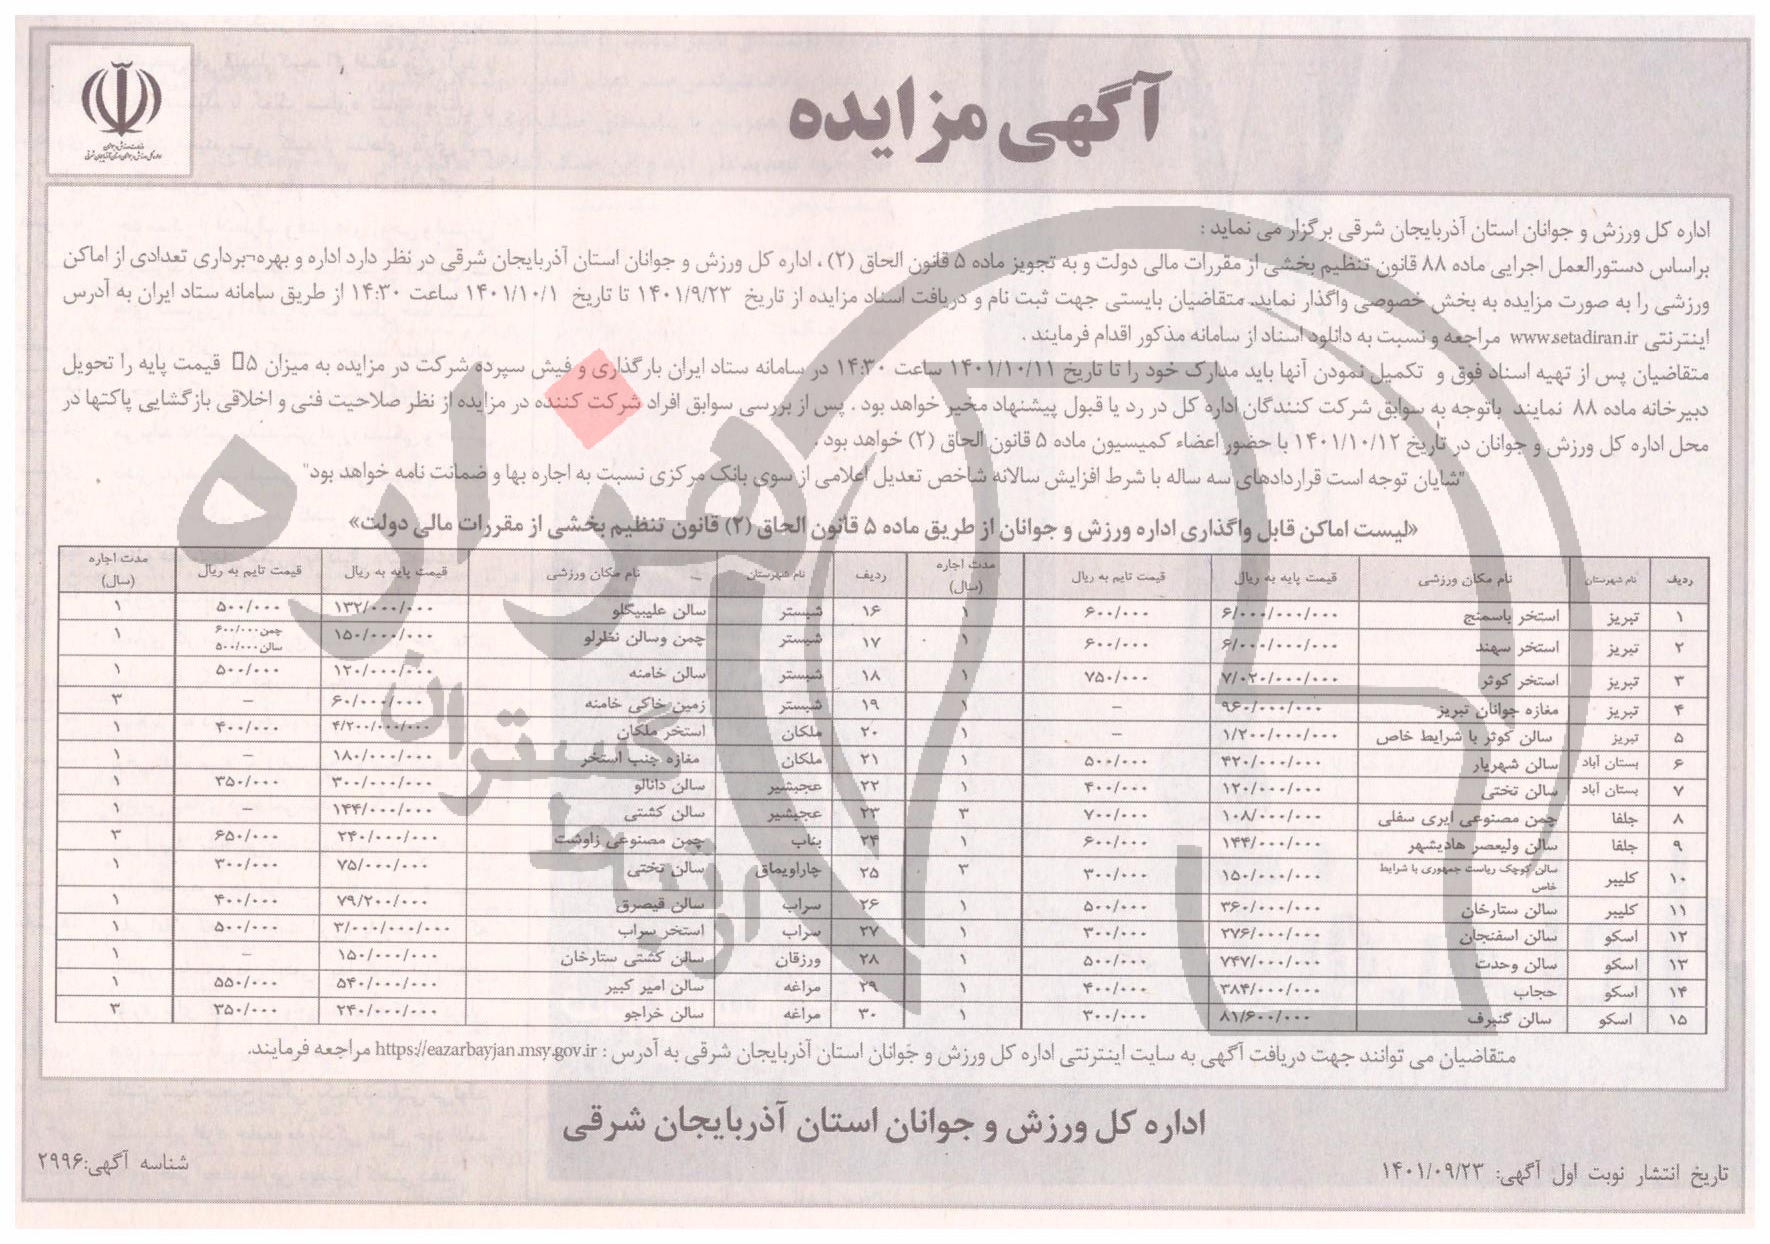 آگهی مزایده
وزارت ورزش و جوانان
اداره کل ورزش و جوانان استان آذربایجان شرقی
اداره کل ورزش و جوانان استان آذربایجان شرقی برگزار می نماید :
براساس دستورالعمل اجرایی ماده ۸۸ قانون تنظیم بخشی از مقررات مالی دولت و به تجویز ماده ۵ قانون الحاق (۲) ، اداره کل ورزش و جوانان استان آذربایجان شرقی در نظر دارد اداره و بهره¬برداری تعدادی از اماکن
ورزشی را به صورت مزایده به بخش خصوصی واگذار نماید. متقاضیان بایستی جهت ثبت نام و دریافت اسناد مزایده از تاریخ ۱۴۰۱/۹/۲۳ تا تاریخ ۱۴۰۱/۱۰/۱ ساعت ۱۴:۳۰ از طریق سامانه ستاد ایران به آدرس
اینترنتی www.setadiran.ir مراجعه و نسبت به دانلود اسناد از سامانه مذکور اقدام فرمایند .
متقاضیان پس از تهیه اسناد فوق و تکمیل نمودن آنها باید مدارک خود را تا تاریخ ۱۴۰۱/۱۰/۱۱ ساعت ۱۴:۳۰ در سامانه ستاد ایران بارگذاری و فیش سپرده شرکت در مزایده به میزان ۵□ قیمت پایه را تحویل
دبیرخانه ماده ۸۸ نمایند باتوجه به سوابق شرکت کنندگان اداره کل در رد یا قبول پیشنهاد مخیر خواهد بود . پس از بررسی سوابق افراد شرکت کننده در مزایده از نظر صلاحیت فنی و اخلاقی بازگشایی پاکتها در
محل اداره کل ورزش و جوانان در تاریخ ۱۴۰۱/۱۰/۱۲ با حضور اعضاء کمیسیون ماده ۵ قانون الحاق (۲) خواهد بود .
"شایان توجه است قراردادهای سه ساله با شرط افزایش سالانه شاخص تعدیل اعلامی از سوی بانک مرکزی نسبت به اجاره بها و ضمانت نامه خواهد بود"
«لیست اماکن قابل واگذاری اداره ورزش و جوانان از طریق ماده ۵ قانون الحاق (۲) قانون تنظیم بخشی از مقررات مالی دولت»
ردیف نام شهرستان نام مکان ورزشی قیمت پایه به ریال قیمت تایم به ریال مدت اجاره (سال) ردیف نام شهرستان نام مکان ورزشی قیمت پایه به ریال قیمت تایم به ریال مدت اجاره (سال)
۱ تبریز استخر باسمنج ۶/۰۰۰/۰۰۰/۰۰۰ ۶۰۰/۰۰۰ ۱ ۱۶ شبستر سالن علیبیگلو ۱۳۲/۰۰۰/۰۰۰ ۵۰۰/۰۰۰ ۱
۲ تبریز استخر سهند ۶/۰۰۰/۰۰۰/۰۰۰ ۶۰۰/۰۰۰ ۱ ۱۷ شبستر چمن وسالن نظرلو ۱۵۰/۰۰۰/۰۰۰ چمن ۶۰۰/۰۰۰ سالن ۵۰۰/۰۰۰ ۱
۳ تبریز استخر کوثر ۷/۰۲۰/۰۰۰/۰۰۰ ۷۵۰/۰۰۰ ۱ ۱۸ شبستر سالن خامنه ۱۲۰/۰۰۰/۰۰۰ ۵۰۰/۰۰۰ ۱
۴ تبریز مغازه جوانان تبریز ۹۶۰/۰۰۰/۰۰۰ – ۱ ۱۹ شبستر زمین خاکی خامنه ۶۰/۰۰۰/۰۰۰ – ۳
۵ تبریز سالن کوثر با شرایط خاص ۱/۲۰۰/۰۰۰/۰۰۰ – ۱ ۲۰ ملکان استخر ملکان ۴/۲۰۰/۰۰۰/۰۰۰ ۴۰۰/۰۰۰ ۱
۶ بستان آباد سالن شهریار ۴۲۰/۰۰۰/۰۰۰ ۵۰۰/۰۰۰ ۱ ۲۱ ملکان مغازه جنب استخر ۱۸۰/۰۰۰/۰۰۰ – ۱
۷ بستان آباد سالن تختی ۱۲۰/۰۰۰/۰۰۰ ۴۰۰/۰۰۰ ۱ ۲۲ عجبشیر سالن دانالو ۳۰۰/۰۰۰/۰۰۰ ۳۵۰/۰۰۰ ۱
۸ جلفا چمن مصنوعی ایری سفلی ۱۰۸/۰۰۰/۰۰۰ ۷۰۰/۰۰۰ ۳ ۲۳ عجبشیر سالن کشتی ۱۴۴/۰۰۰/۰۰۰ – ۱
۹ جلفا سالن ولیعصر هادیشهر ۱۴۴/۰۰۰/۰۰۰ ۶۰۰/۰۰۰ ۱ ۲۴ بناب چمن مصنوعی زاوشت ۲۴۰/۰۰۰/۰۰۰ ۶۵۰/۰۰۰ ۳
۱۰ کلیبر سالن کوچک ریاست جمهوری با شرایط خاص ۱۵۰/۰۰۰/۰۰۰ ۳۰۰/۰۰۰ ۳ ۲۵ چاراویماق سالن تختی ۷۵/۰۰۰/۰۰۰ ۳۰۰/۰۰۰ ۱
۱۱ کلیبر سالن ستارخان ۳۶۰/۰۰۰/۰۰۰ ۵۰۰/۰۰۰ ۱ ۲۶ سراب سالن قیصرق ۷۹/۲۰۰/۰۰۰ ۴۰۰/۰۰۰ ۱
۱۲ اسکو سالن اسفنجان ۲۷۶/۰۰۰/۰۰۰ ۳۰۰/۰۰۰ ۱ ۲۷ سراب استخر سراب ۳/۰۰۰/۰۰۰/۰۰۰ ۵۰۰/۰۰۰ ۱
۱۳ اسکو سالن وحدت ۷۴۷/۰۰۰/۰۰۰ ۵۰۰/۰۰۰ ۱ ۲۸ ورزقان سالن کشتی ستارخان ۱۵۰/۰۰۰/۰۰۰ – ۱
۱۴ اسکو حجاب ۳۸۴/۰۰۰/۰۰۰ ۴۰۰/۰۰۰ ۱ ۲۹ مراغه سالن امیر کبیر ۵۴۰/۰۰۰/۰۰۰ ۵۵۰/۰۰۰ ۱
۱۵ اسکو سالن گنبرف ۸۱/۶۰۰/۰۰۰ ۳۰۰/۰۰۰ ۱ ۳۰ مراغه سالن خراجو ۲۴۰/۰۰۰/۰۰۰ ۳۵۰/۰۰۰ ۳
متقاضیان می توانند جهت دریافت آگهی به سایت اینترنتی اداره کل ورزش و جوانان استان آذربایجان شرقی به آدرس : https://eazarbayjan.msy.gov.ir مراجعه فرمایند.
اداره کل ورزش و جوانان استان آذربایجان شرقی
تاریخ انتشار نوبت اول آگهی: ۱۴۰۱/۰۹/۲۳
شناسه آگهی:۲۹۹۶
هزاره
ارتباط گستران